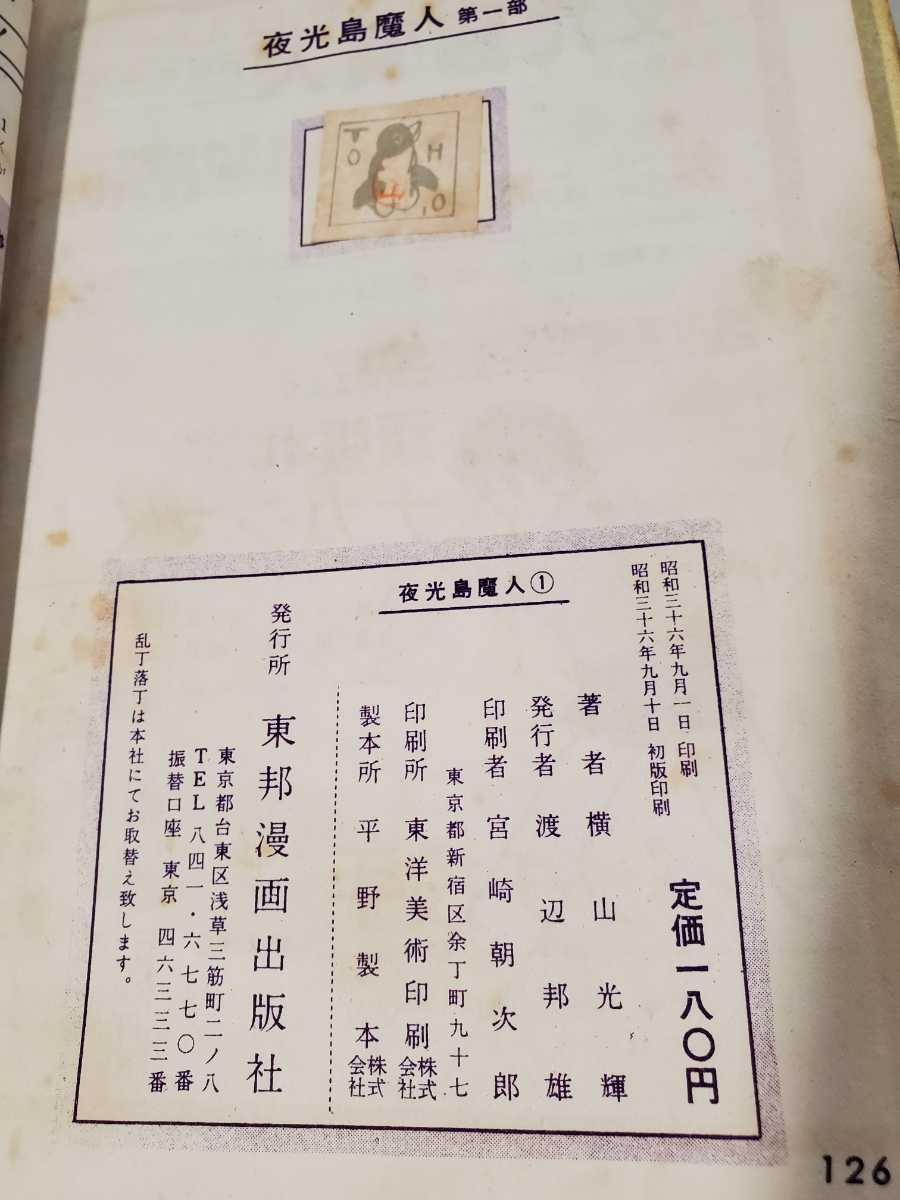 夜光島魔人 第一部
TOHO
昭和三十六年九月一日 印刷
昭和三十六年九月十日 初版印刷
定価一八〇円
夜光島魔人①
著者 横山光輝
発行者 渡辺邦雄
印刷者 宮崎朝次郎
東京都新宿区余丁町九十七
印刷所 東洋美術印刷株式会社
製本所 平野製本株式会社
発行所 東邦漫画出版社
東京都台東区浅草三筋町二ノ八
TEL 八四一・六七七〇番
振替口座 東京 四六三三三番
乱丁落丁は本社にてお取替え致します。
126